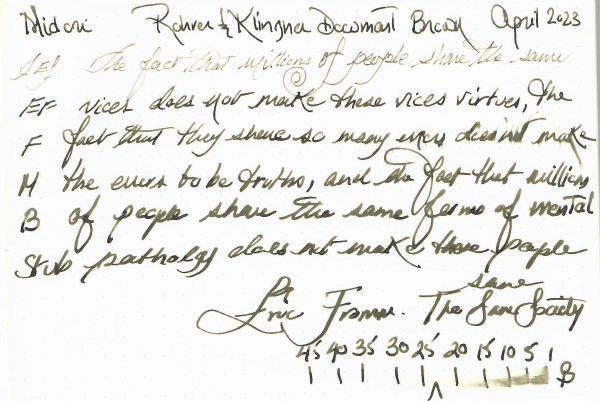 Midori Rohrer & Klingner Document Brown April 2023
EEF The fact that millions of people share the same
EF vices does not make these vices virtues, the
F fact that they share so many errors does not make
M the errors to be truths, and the fact that millions
B of people share the same forms of mental
Stub pathology does not make those people
sane
Eric Fromm. The Sane Society
45 40 35 30 25 20 15 10 5 1
B